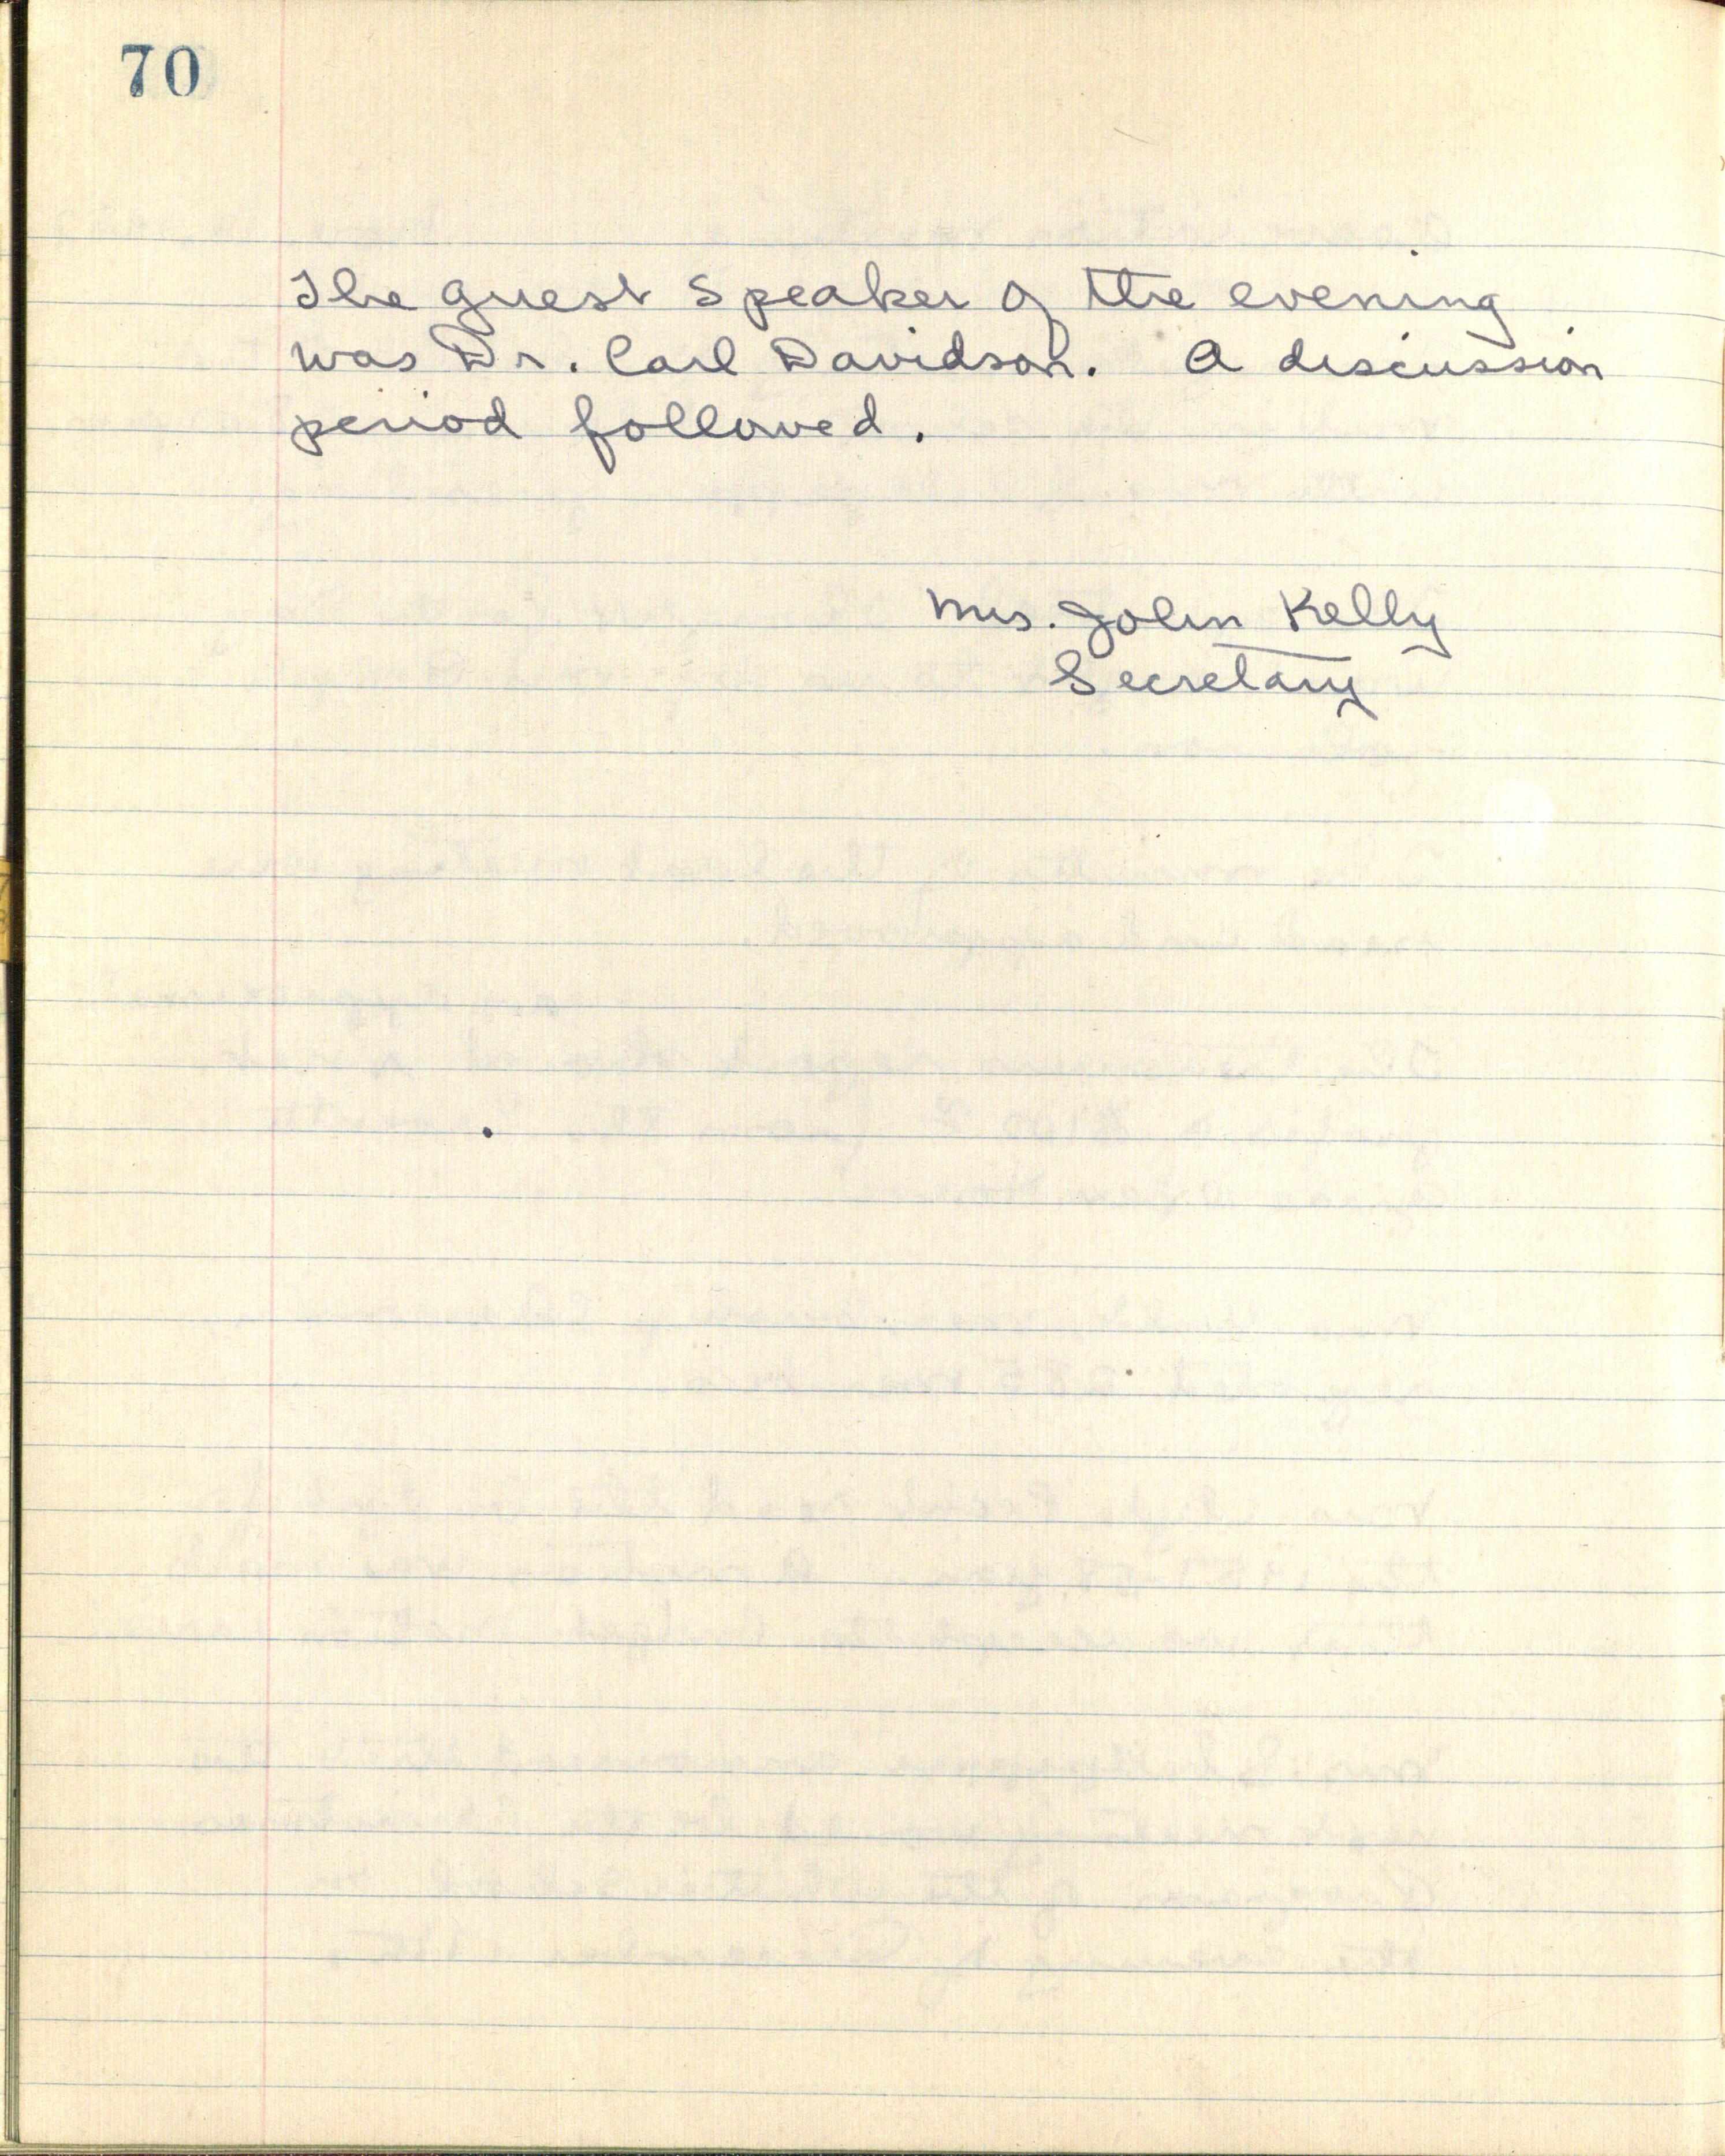 70
The guest speaker of the evening
was Dr. Carl Davidson. A discussion
period followed.
Mrs. John Kelly
Secretary